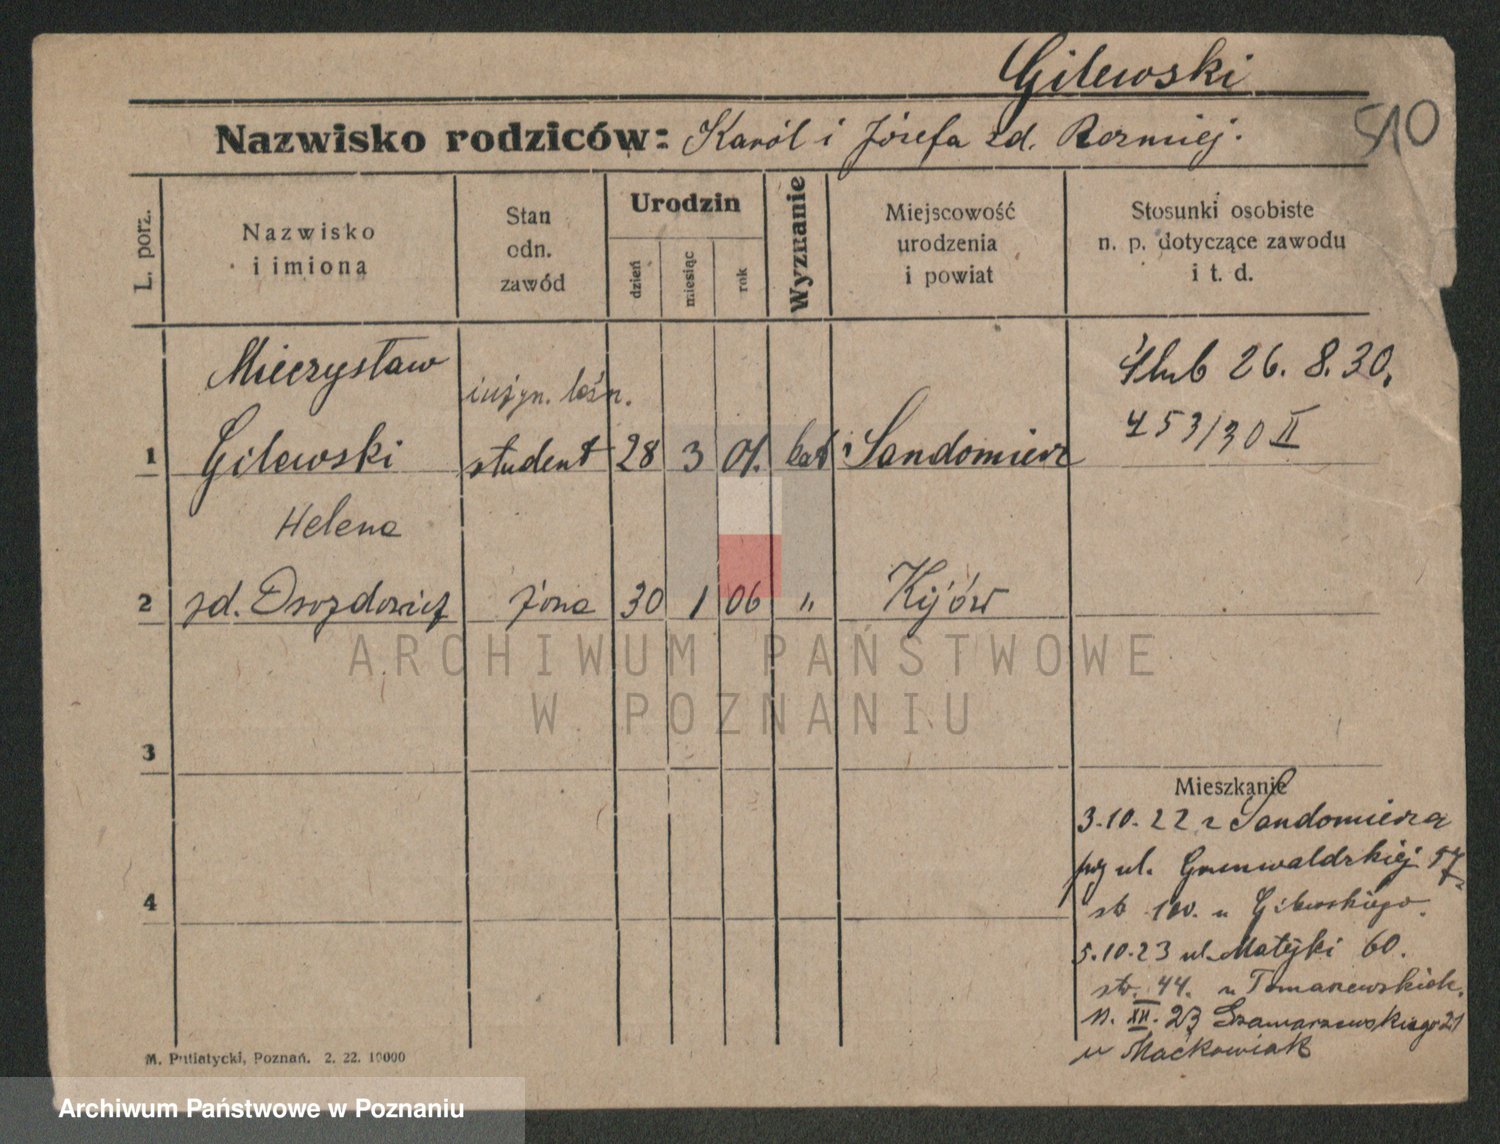 Gilewski
510
Nazwisko rodziców: Karól i Józefa zd. Rozmiej.
L. porz.
Nazwisko
i imiona
Stan
odn.
zawód
Urodzin
dzień
miesiąc
rok
Wyznanie
Miejscowość
urodzenia
i powiat
Stosunki osobiste
n. p. dotyczące zawodu
i t. d.
Mieczysław
inżyn. leśn.
Ślub 26. 8. 30.
1 Gilewski student 28 3 01. kat Sandomierz
453/30 II
Helena
2 zd. Drozdowicz żona 30 1 06 " Kijów
3
4
Mieszkanie
3.10.22 z Sandomierza
przy ul. Grunwaldzkiej 57
str 100. u Gilewskiego.
5.10.23 ul. Matejki 60.
str. 44. u Tomanewskich.
11. XII. 23 Szamarzewskiego 21
u Maćkowiak
M. Putiatycki, Poznań. 2. 22. 10000
ARCHIWUM PAŃSTWOWE
W POZNANIU
Archiwum Państwowe w Poznaniu